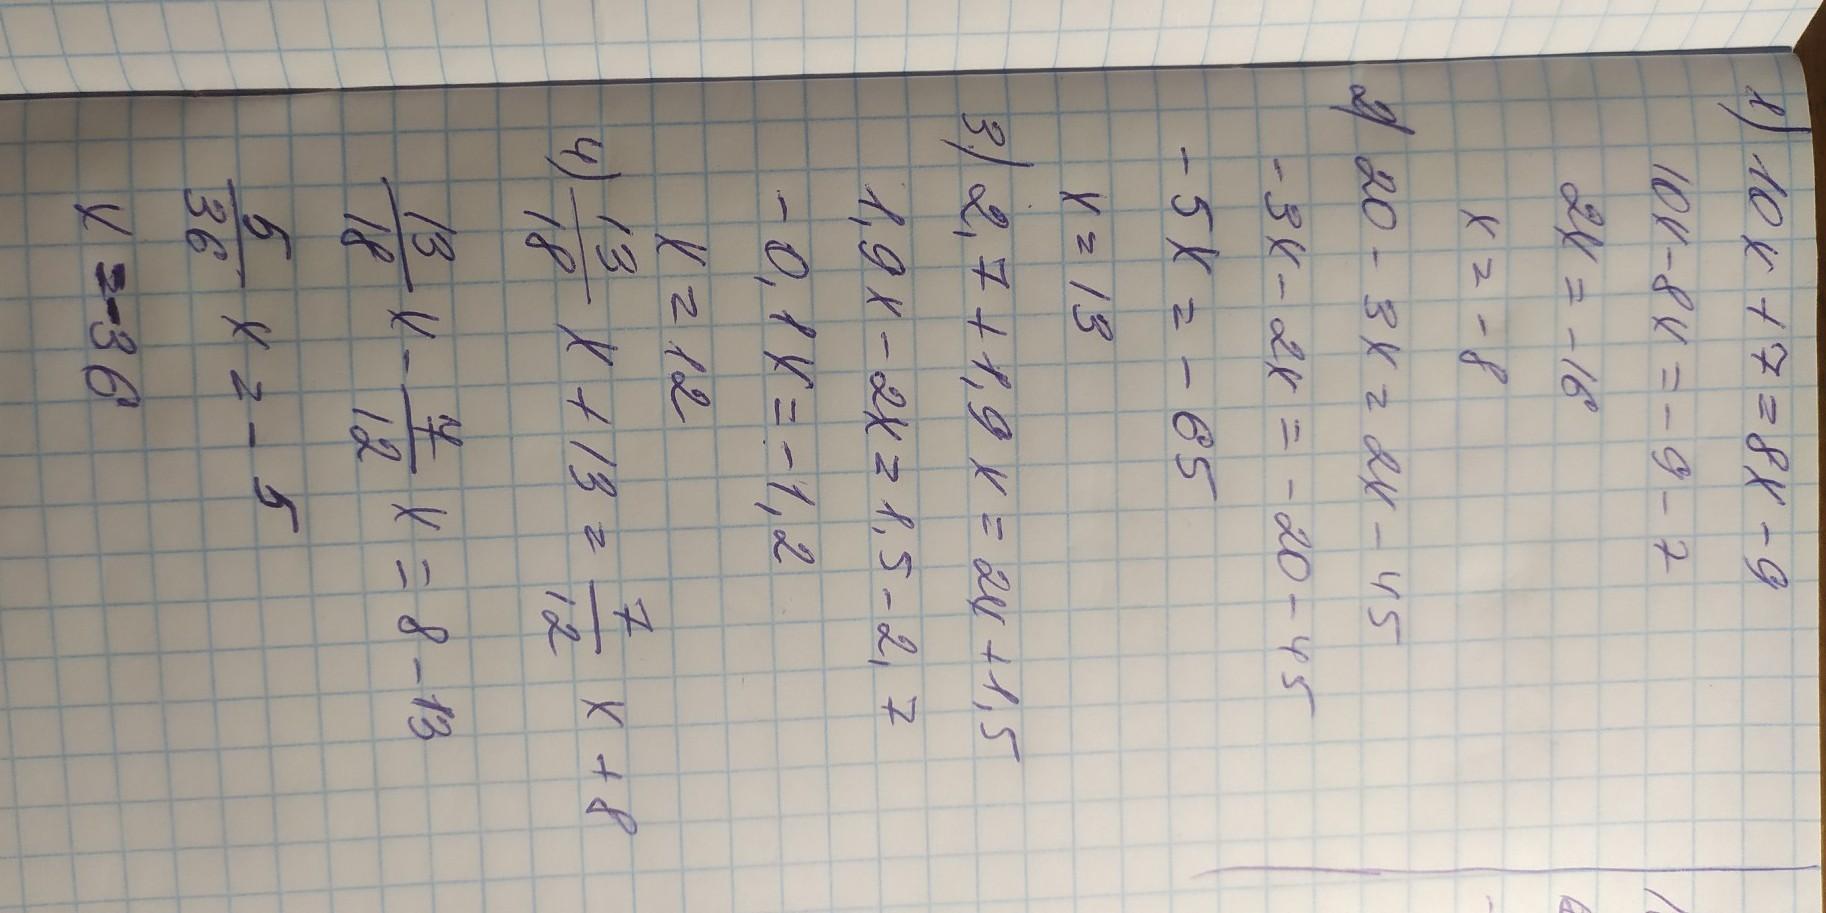 1) 10x+7=8x-9
10x-8x=-9-7
2x=-16
x=-8
2) 20-3x=2x-45
-3x-2x=-20-45
-5x=-65
x=13
3) 2,7+1,9x=2x+1,5
1,9x-2x=1,5-2,7
-0,1x=-1,2
x=12
4) 13/18 x+13=7/12 x+8
13/18 x-7/12 x=8-13
5/36 x=-5
x=-36